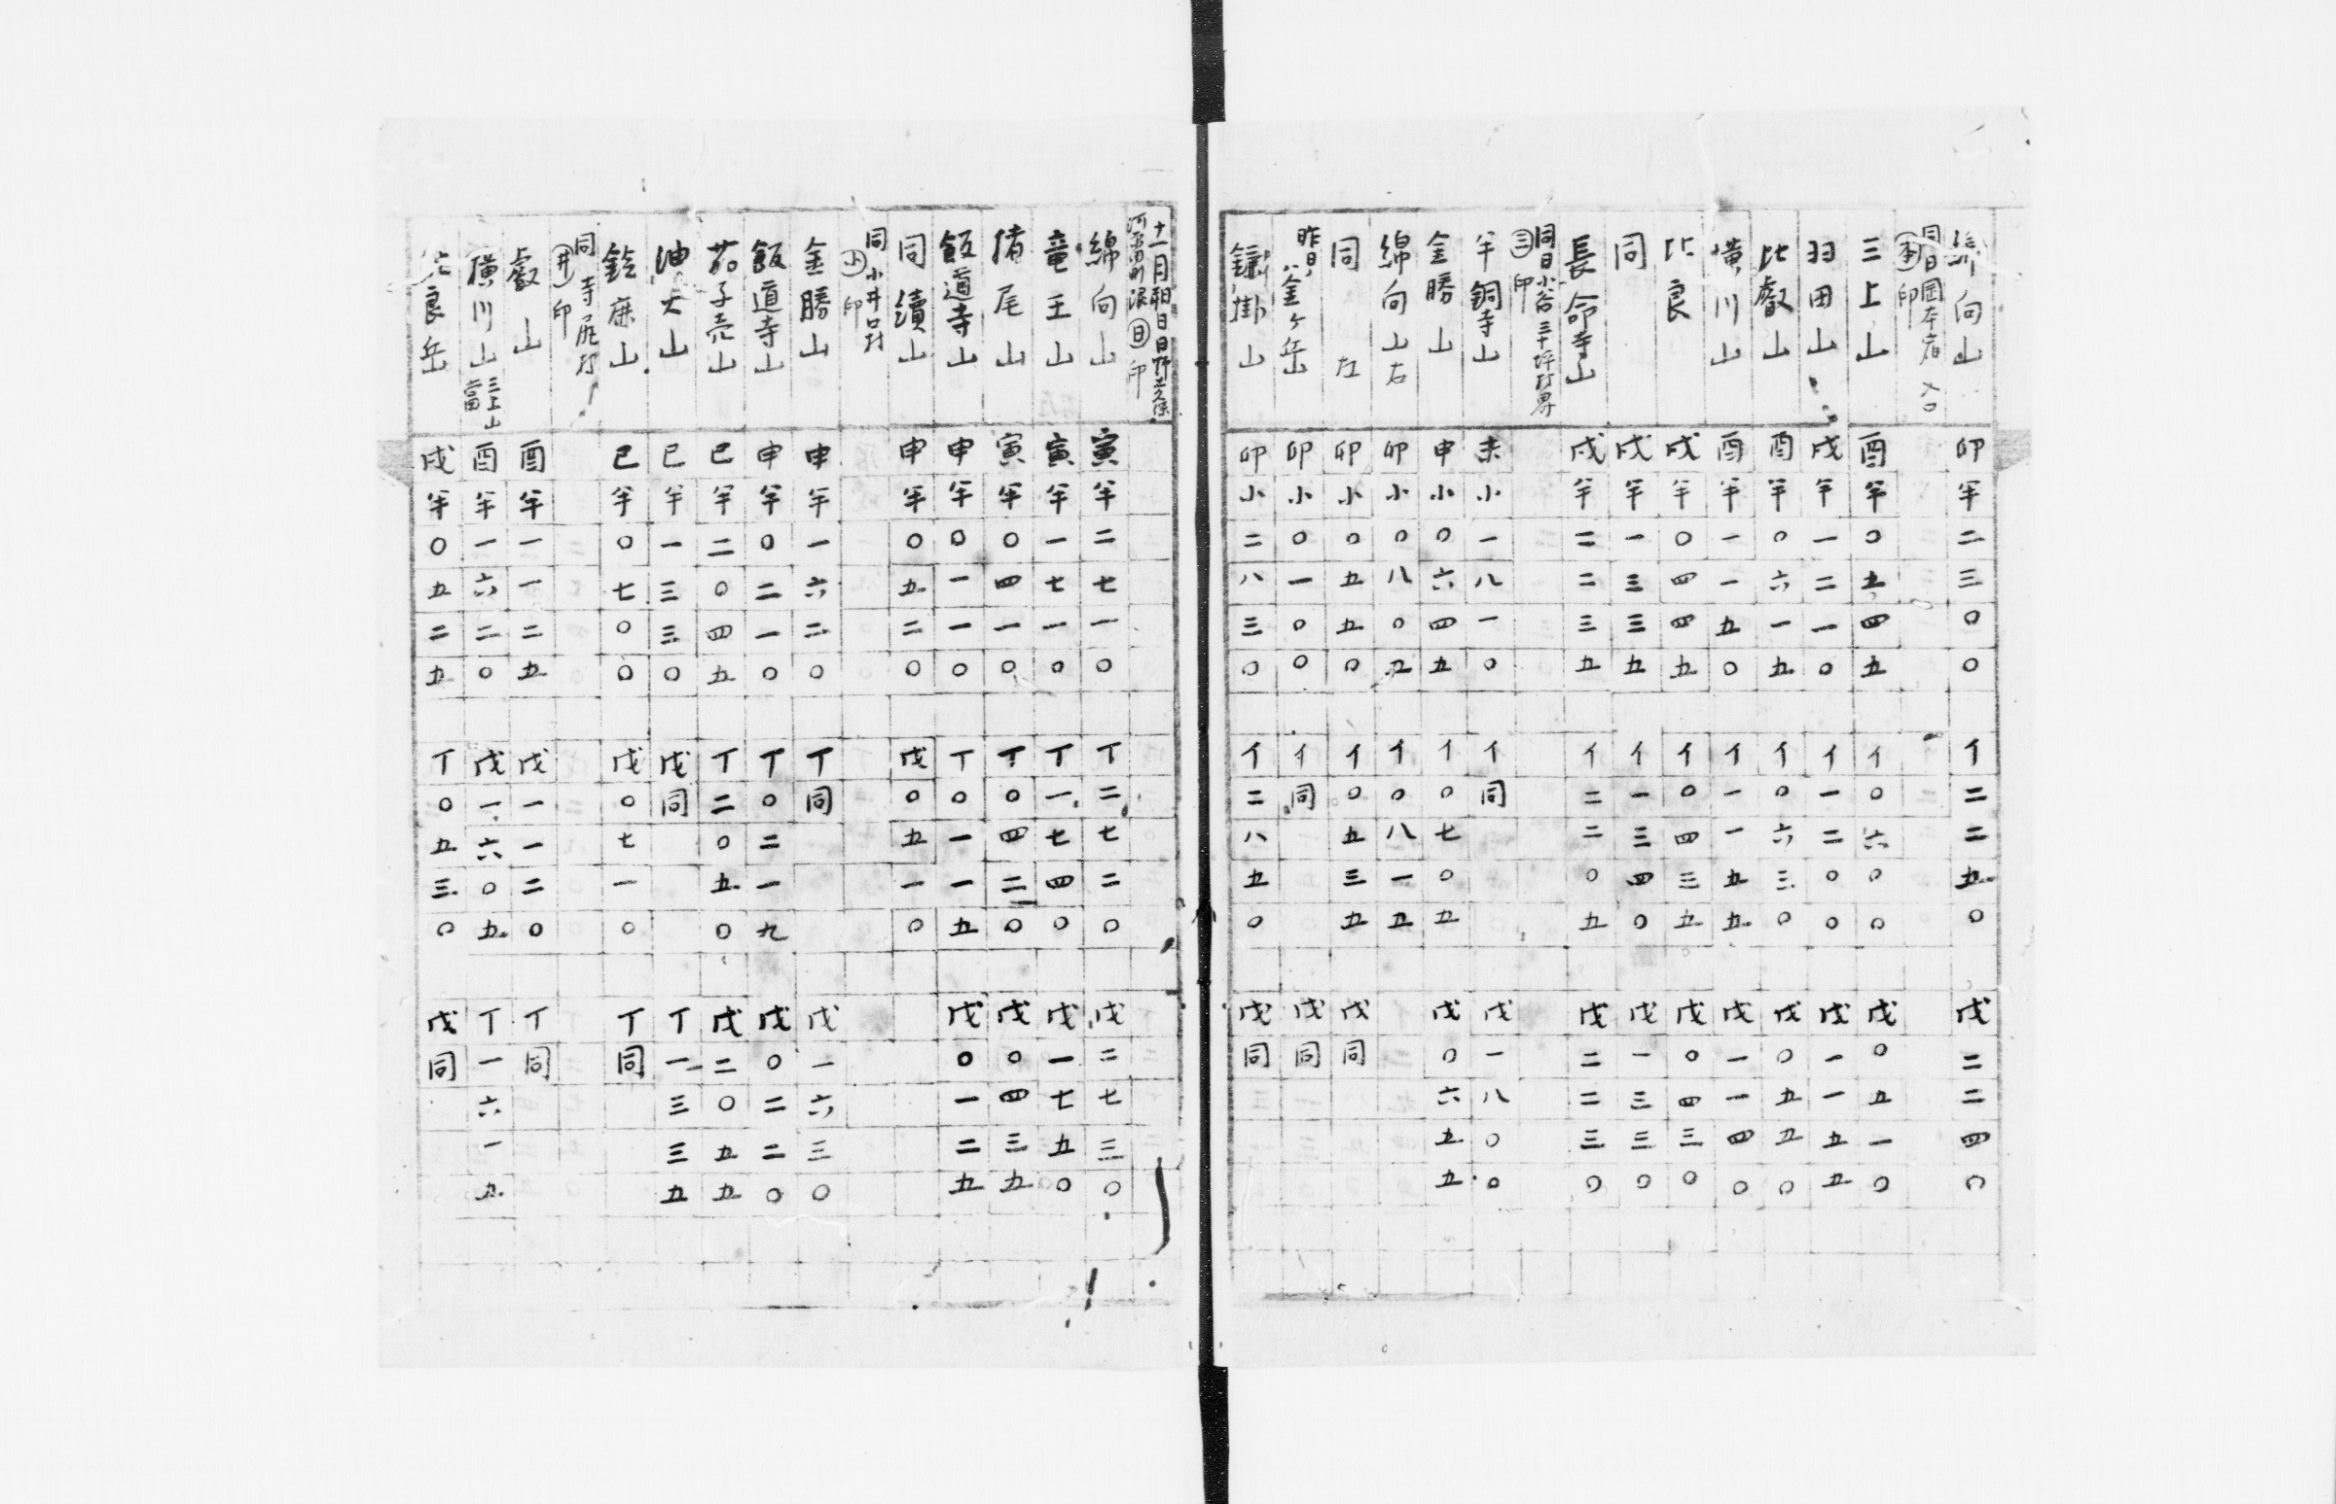 綿向山 卯半二三〇〇 イ二二五〇 戊二二四〇
同日岡本宿入口
㊍印
三上山 酉半〇五四五 イ〇六〇〇 戊〇五一〇
羽田山 戌半一二一〇 イ一二〇〇 戊一一五五
比叡山 酉半〇六一五 イ〇六三〇 戊〇五五〇
横川山 酉半一一五〇 イ一一五五 戊一一四〇
比良 戌半〇四四五 イ〇四三五 戊〇四三〇
同 戌半一三三五 イ一三四〇 戊一三三〇
長命寺山 戌半二二三五 イ二二〇五 戊二二三〇
同日小谷三十坪村界
㊂印
半銅寺山 未小一八一〇 イ同 戊一八〇〇
金勝山 申小〇六四五 イ〇七〇五 戊〇六五五
綿向山右 卯小〇八〇 イ〇八一五
同 左 卯小〇五五〇 イ〇五三五 戊同
昨日ノ八金ヶ岳 卯小〇一〇〇 イ同 戊同
鎌掛山 卯小二八三〇 イ二八五〇 戊同
十一月朔日日野
㊐印
綿向山 寅半二七一〇 丁二七二〇 戊二七三〇
竜王山 寅半一七一〇 丁一七四〇 戊一七五〇
猪尾山 寅半〇四一〇 丁〇四二〇 戊〇四三五
飯道寺山 申半〇一一〇 丁〇一一五 戊〇一二五
同續山 申半〇五二〇 戊〇五一〇
同小井口村
㊤印
金勝山 申半一六二〇 丁同 戊一六三〇
飯道寺山 申半〇二一〇 丁〇二一九 戊〇二二〇
茄子売山 巳半二〇四五 丁二〇五〇 戊二〇五五
油火山 巳半一三三〇 戊同 丁一三三五
鈴鹿山 巳半〇七〇〇 戊〇七一〇 丁同
同寺尻村
㊌印
叡山 酉半一一二五 戊一一二〇 丁同
横川山三上山當 酉半一六二〇 戊一六〇五 丁一六一五
比良岳 戌半〇五二五 丁〇五三〇 戊同